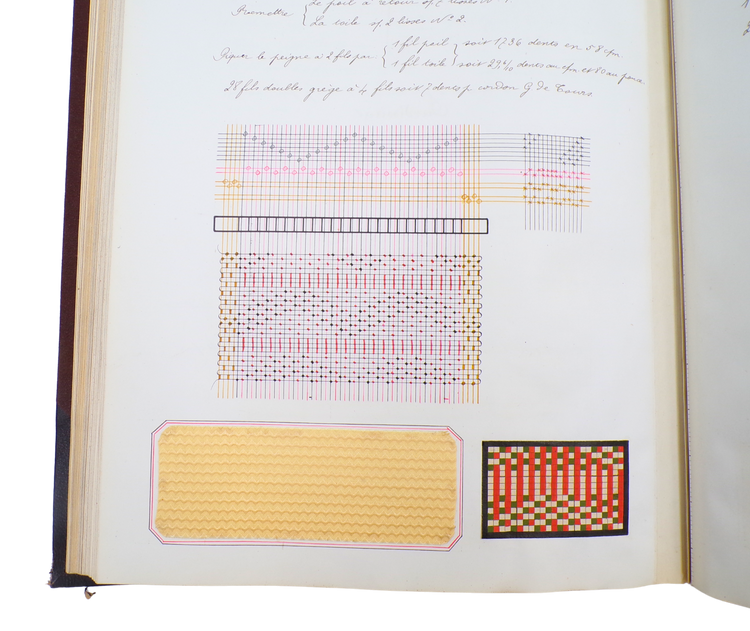 Le poil à retour sp 2 lisses N° 1.
Remettre
La toile sp 2 lisses N° 2.
1 fil poil
Piquer le peigne à 2 fils par soit 1736 dents en 58 c/m
1 fil toile soit 29 9/10 dents au c/m et 80 au pouce
28 fils doubles grège à 4 fils soit 7 dents p cordon G de Tours